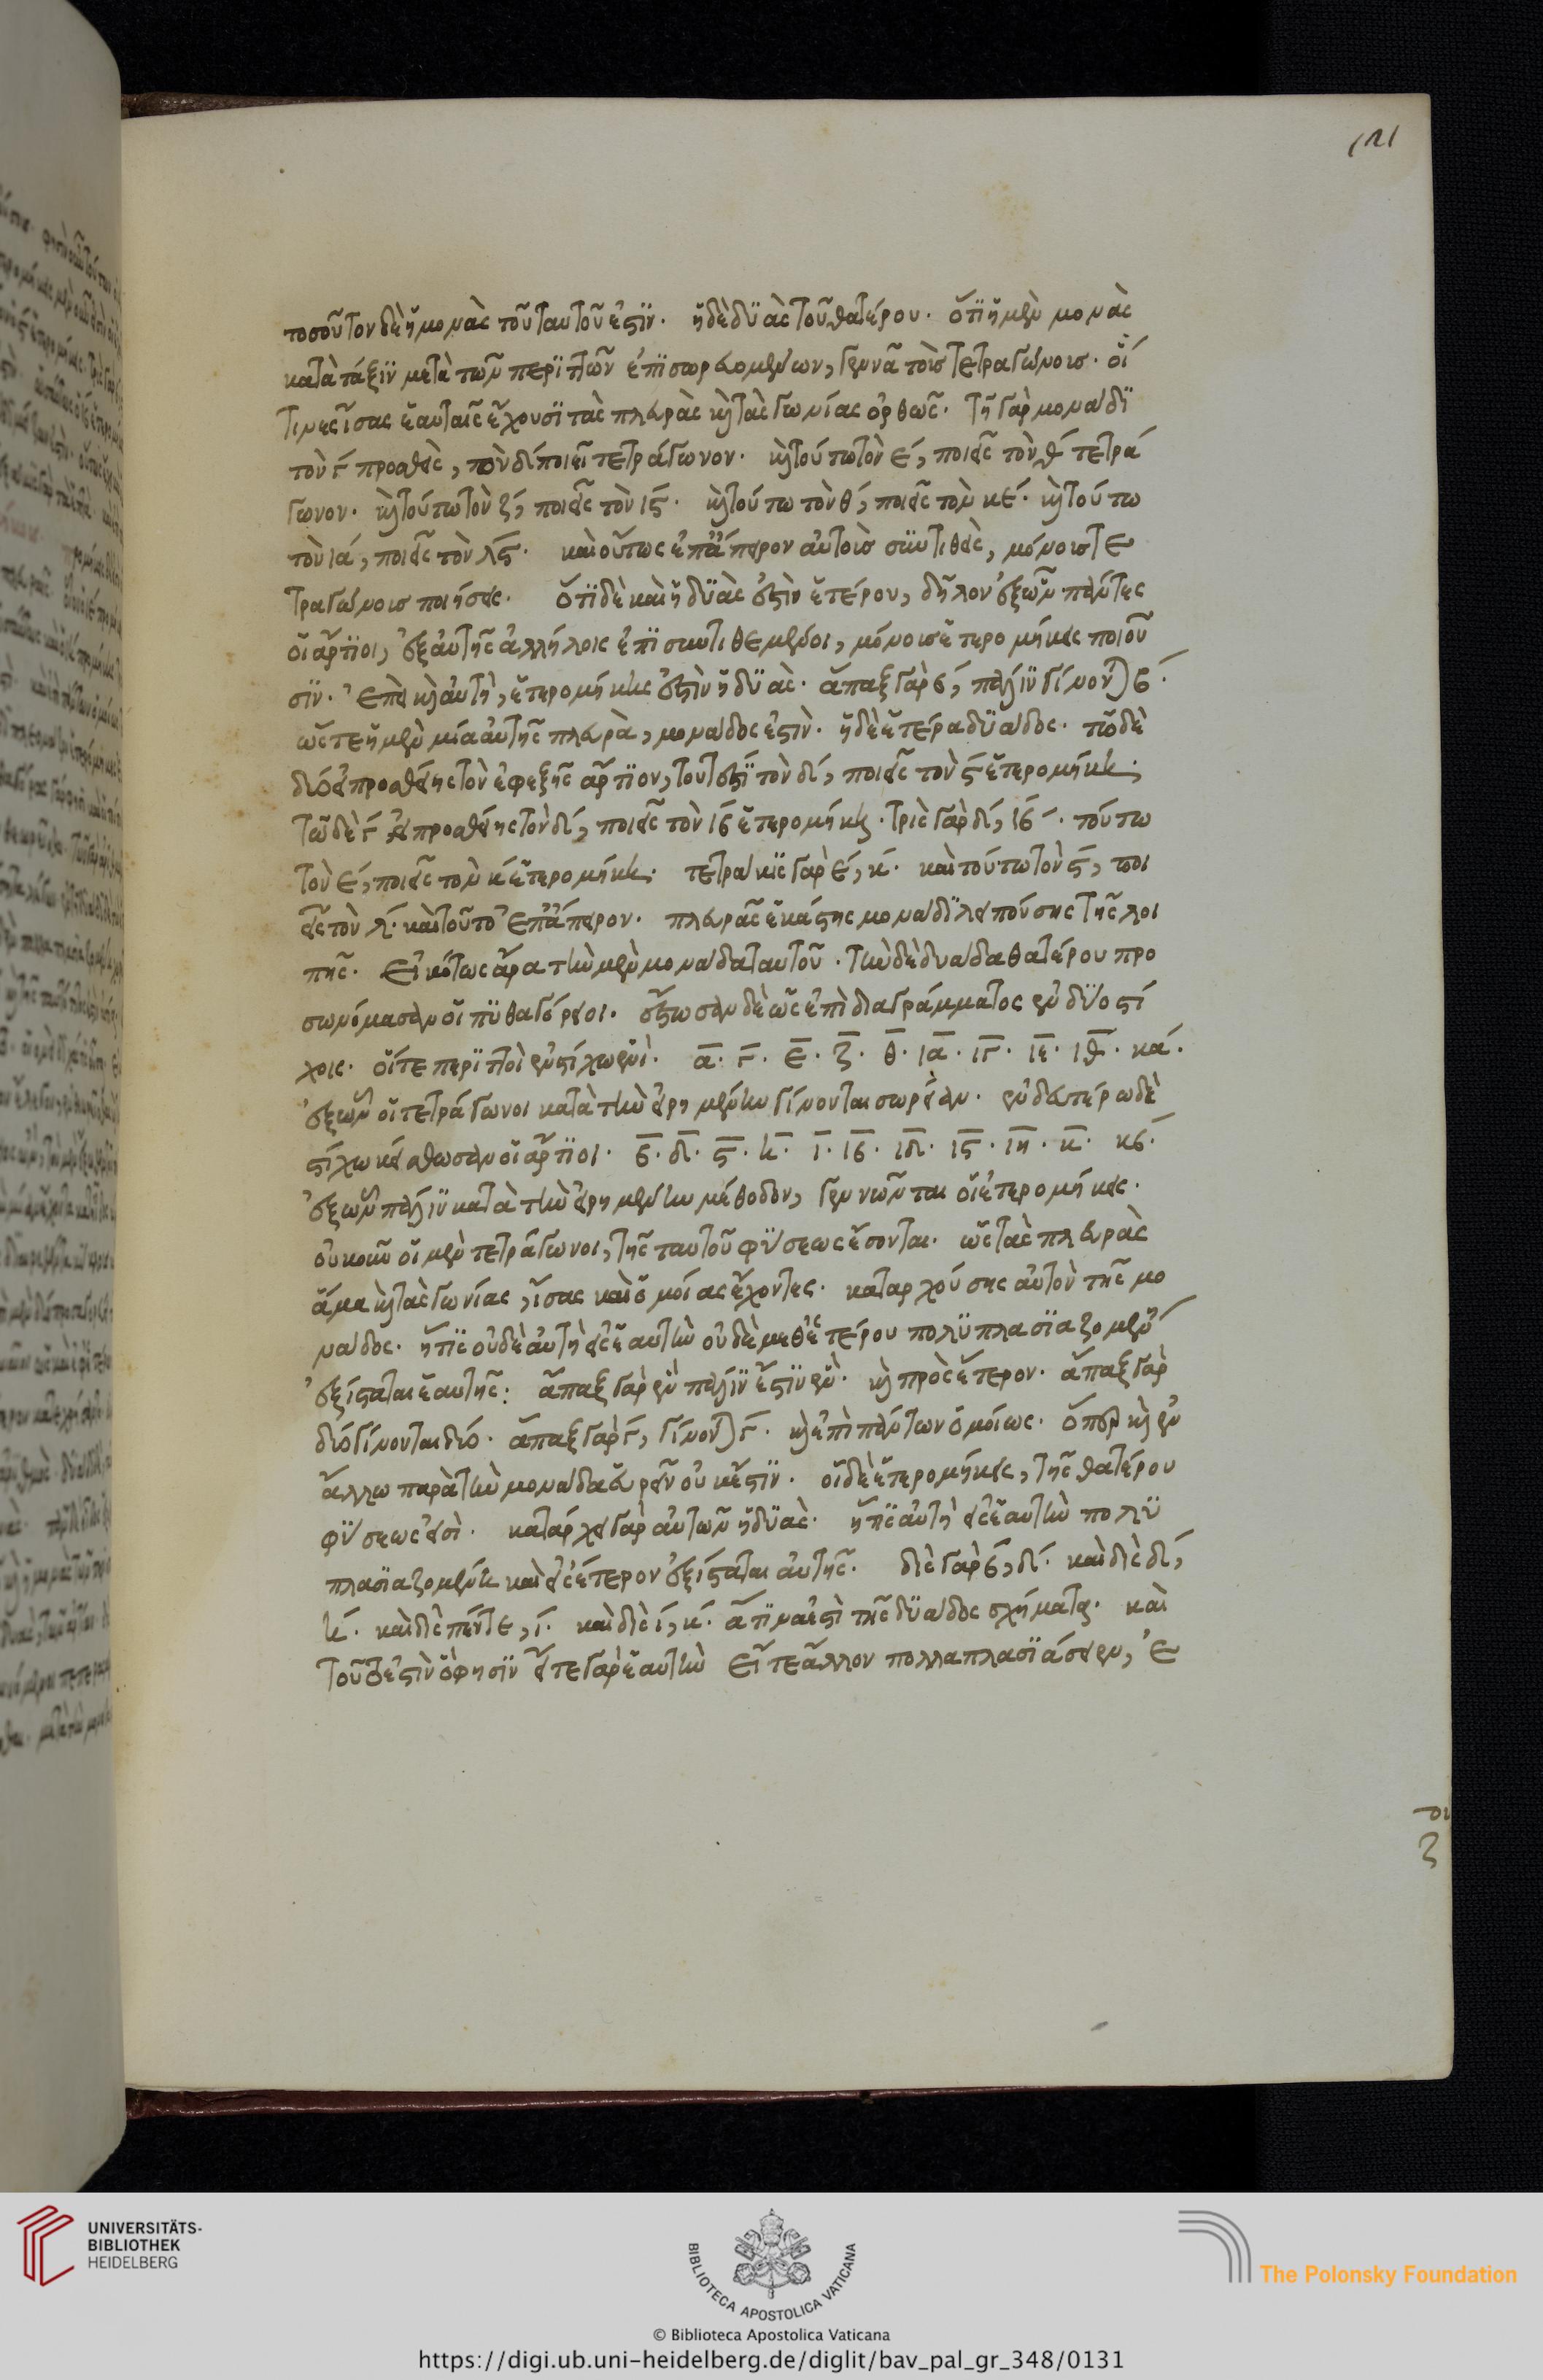 121
τοσοῦτον δὲ ἡ μονὰς τοῦ ταυτοῦ ἐστϊν. ἡ δὲ δϋὰς τοῦ θατέρου. ὅτϊ ἡ μὲν μονὰς
κατὰ τάξϊν μετὰ τῶν περϊττῶν ἐπϊσωρευομένων, γεννᾶ τοὺσ τετραγώνουσ. οἵ
τινες ἴσας ἑαυταῖς ἔχουσϊ τὰς πλευρὰς καὶ τὰς γωνίας ὀρθῶς. τῆ γὰρ μονάδϊ
τὸν γ προσθεὶς, τὸν δ ποιεῖ τετράγωνον. καὶ τούτω τὸν ε, ποιεῖς τὸν θ τετρά
γωνον. καὶ τούτω τὸν ζ, ποιεῖς τὸν ις. καὶ τούτω τὸν θ, ποιεῖς τὸν κε. καὶ τούτω
τὸν ια, ποιεῖς τὸν λς. καὶ οὕτως ἐπ' ἄπειρον αὐτοὺσ συντιθεὶς, μόνουσ τε
τραγώνουσ ποιήσεις. ὅτϊ δὲ καὶ ἡ δϋὰς ἐστὶν ἑτέρου, δῆλον ἐξ ὧν πάντες
οἱ ἄρτϊοι, ἐξ αὐτῆς ἀλλήλοις ἐπϊσυντιθεμένοι, μόνουσ ἑτερομήκεις ποιοῦ
σϊν. ἐπεὶ καὶ αὐτὴ, ἑτερομήκης ἐστὶν ἡ δϋάς. ἅπαξ γὰρ β, πάλϊν γίνονται β.
ὥστε ἡ μὲν μία αὐτῆς πλευρὰ, μονάδος ἐστὶν. ἡ δὲ ἑτέρα δϋάδος. τῶ δὲ
δύο εἰ προσθείης τὸν ἐφεξῆς ἄρτϊον, τουτέστϊ τὸν δ, ποιεῖς τὸν ς ἑτερομήκη.
τῶ δὲ γ εἰ προσθείης τὸν δ, ποιεῖς τὸν ιβ ἑτερομήκη. τρὶς γὰρ δ, ιβ. τούτω
τὸν ε, ποιεῖς τὸν κ ἑτερομήκη. τετράκϊς γὰρ ε, κ. καὶ τούτω τὸν ς, ποι
εῖς τὸν λ. καὶ τοῦτο ἐπ' ἄπειρον. πλευρᾶς ἑκάστης μονάδϊ λειπούσης τῆς λοι
πῆς. εἰκότως ἄρα τὴν μὲν μονάδα ταυτοῦ. τὴν δὲ δυάδα θατέρου προ
σωνόμασαν οἱ πϋθαγόρειοι. ἔστωσαν δὲ ὡς ἐπὶ διαγράμματος ἐν δϋο στί
χοις. οἵ τε περϊττοὶ ἐν στίχω ἑνὶ. α. γ. ε. ζ. θ. ια. ιγ. ιε. ιθ. κα.
ἐξ ὧν οἱ τετράγωνοι κατὰ τὴν εἰρημένην γίνονται σωρείαν. ἐν δευτέρω δὲ
στίχω κείσθωσαν οἱ ἄρτϊοι. β. δ. ς. η. ι. ιβ. ιδ. ις. ιη. κ. κβ.
ἐξ ὧν πάλϊν κατὰ τὴν εἰρημένην μέθοδον, γεννῶνται οἱ ἑτερομήκεις.
οὐκοῦν οἱ μὲν τετράγωνοι, τῆς ταυτοῦ φϋσεως ἔσονται. ὡς τὰς πλευρὰς
ἅμα καὶ τὰς γωνίας, ἴσας καὶ ὁμοίας ἔχοντες. καταρχούσης αὐτὸν τῆς μο
νάδος. ἥτϊς οὐδὲ αὐτὴ εἰς ἑαυτὴν οὐδὲ μεθ' ἑτέρου πολϋπλασϊαζομένη
ἐξίσταται ἑαυτῆς: ἅπαξ γὰρ ἓν πάλϊν ἐστϊν ἓν. καὶ πρὸς ἕτερον. ἅπαξ γὰρ
δύο γίνονται δύο. ἅπαξ γὰρ γ, γίνονται γ. καὶ ἐπὶ πάντων ὁμοίως. ὅπερ καὶ ἐν
ἄλλω παρὰ τὴν μονάδα εὑρεῖν οὐκ ἔστϊν. οἱ δὲ ἑτερομήκεις, τῆς θατέρου
φϋσεως εἰσὶ. κατάρχει γὰρ αὐτῶν ἡ δϋὰς. ἥτϊς αὐτὴ εἰς ἑαυτὴν πολϋ
πλασϊαζομένη καὶ εἰς ἕτερον ἐξίσταται αὐτῆς. δὶς γὰρ β, δ. καὶ δὶς δ,
η. καὶ δὶς πέντε, ι. καὶ δὶς ι, κ. ἅτϊνα εἰσὶ τῆς δϋάδος σχήματα. καὶ
τοῦτο ἐστὶν ὃ φησϊν εἴτε γὰρ ἑαυτὴν εἴτε ἄλλον πολλαπλασϊάσειεν, ἐ
UNIVERSITÄTS-
BIBLIOTHEK
HEIDELBERG
BIBLIOTECA APOSTOLICA VATICANA
The Polonsky Foundation
© Biblioteca Apostolica Vaticana
https://digi.ub.uni-heidelberg.de/diglit/bav_pal_gr_348/0131